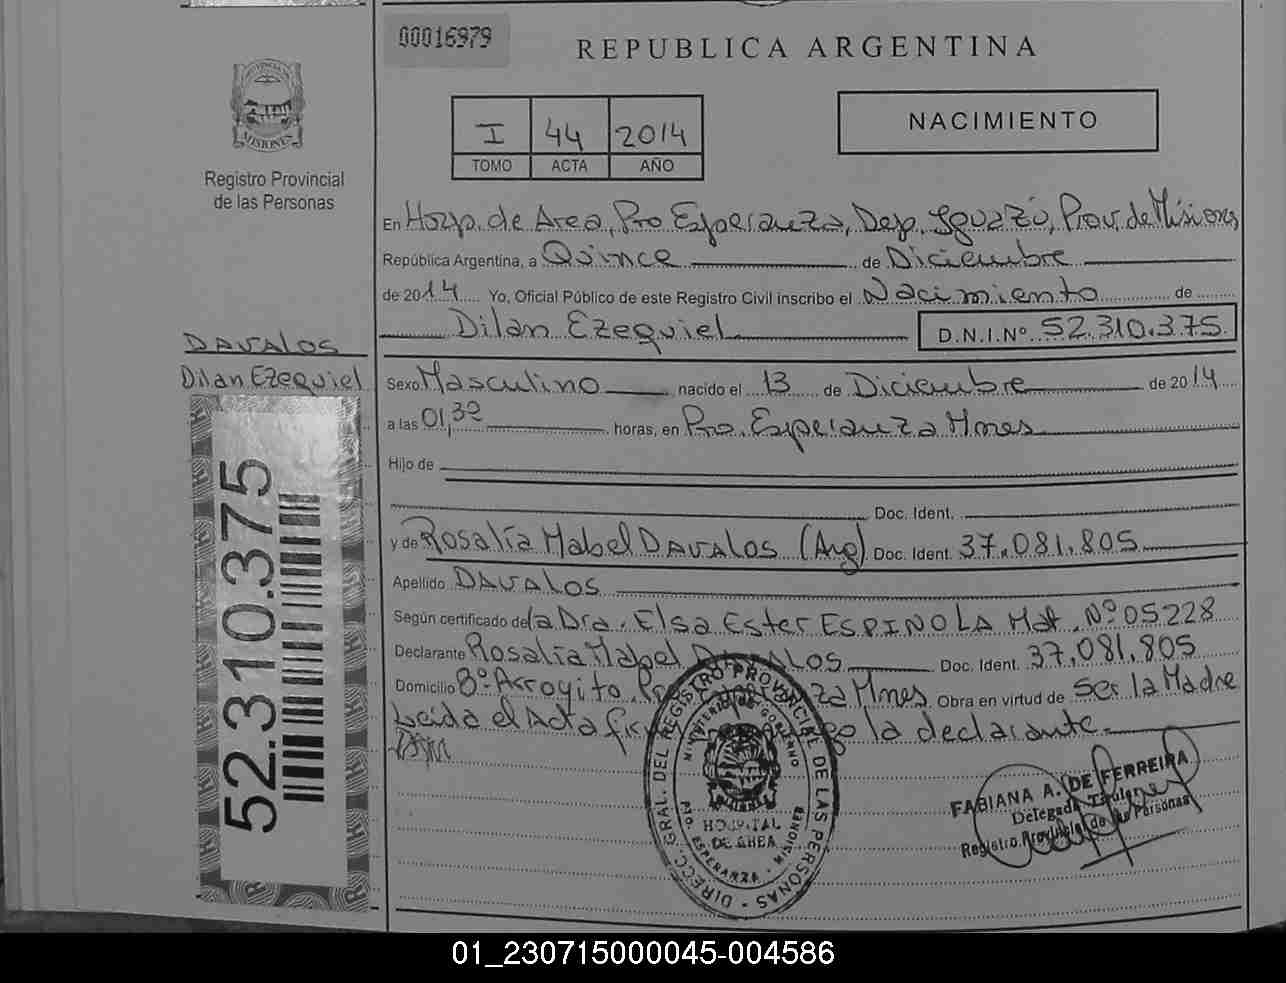 00016979
REPUBLICA ARGENTINA
I 44 2014
TOMO ACTA AÑO
NACIMIENTO
PROVINCIA DE
MISIONES
Registro Provincial
de las Personas
En Hosp. de Area, Pto Esperanza, Dep. Iguazú, Prov. de Misiones,
República Argentina, a Quince de Diciembre
de 2014 Yo, Oficial Público de este Registro Civil inscribo el Nacimiento de
Dilan Ezequiel D.N.I.Nº 52.310.375
DAVALOS
Dilan Ezequiel
Sexo Masculino nacido el 13 de Diciembre de 2014
a las 01,30 horas, en Pto. Esperanza Mnes
Hijo de
Doc. Ident.
y de Rosalía Mabel DAVALOS (Arg) Doc. Ident. 37.081.805
Apellido DAVALOS
Según certificado de la Dra. Elsa Ester ESPINOLA Mat. Nº 05228
Declarante Rosalía Mabel DAVALOS Doc. Ident. 37,081,805
Domicilio Bº Arroyito, Pto Esperanza Mnes. Obra en virtud de Ser la Madre
Leida el Acta la declarante.
52.310.375
DIRECC. GRAL. DEL REGISTRO PROVINCIAL DE LAS PERSONAS
MINISTERIO DE GOBIERNO
HOSPITAL
DE AREA
PTO. ESPERANZA - MISIONES
FABIANA A. DE FERREIRA
Delegada Titular
Registro Provincial de las Personas
01_230715000045-004586